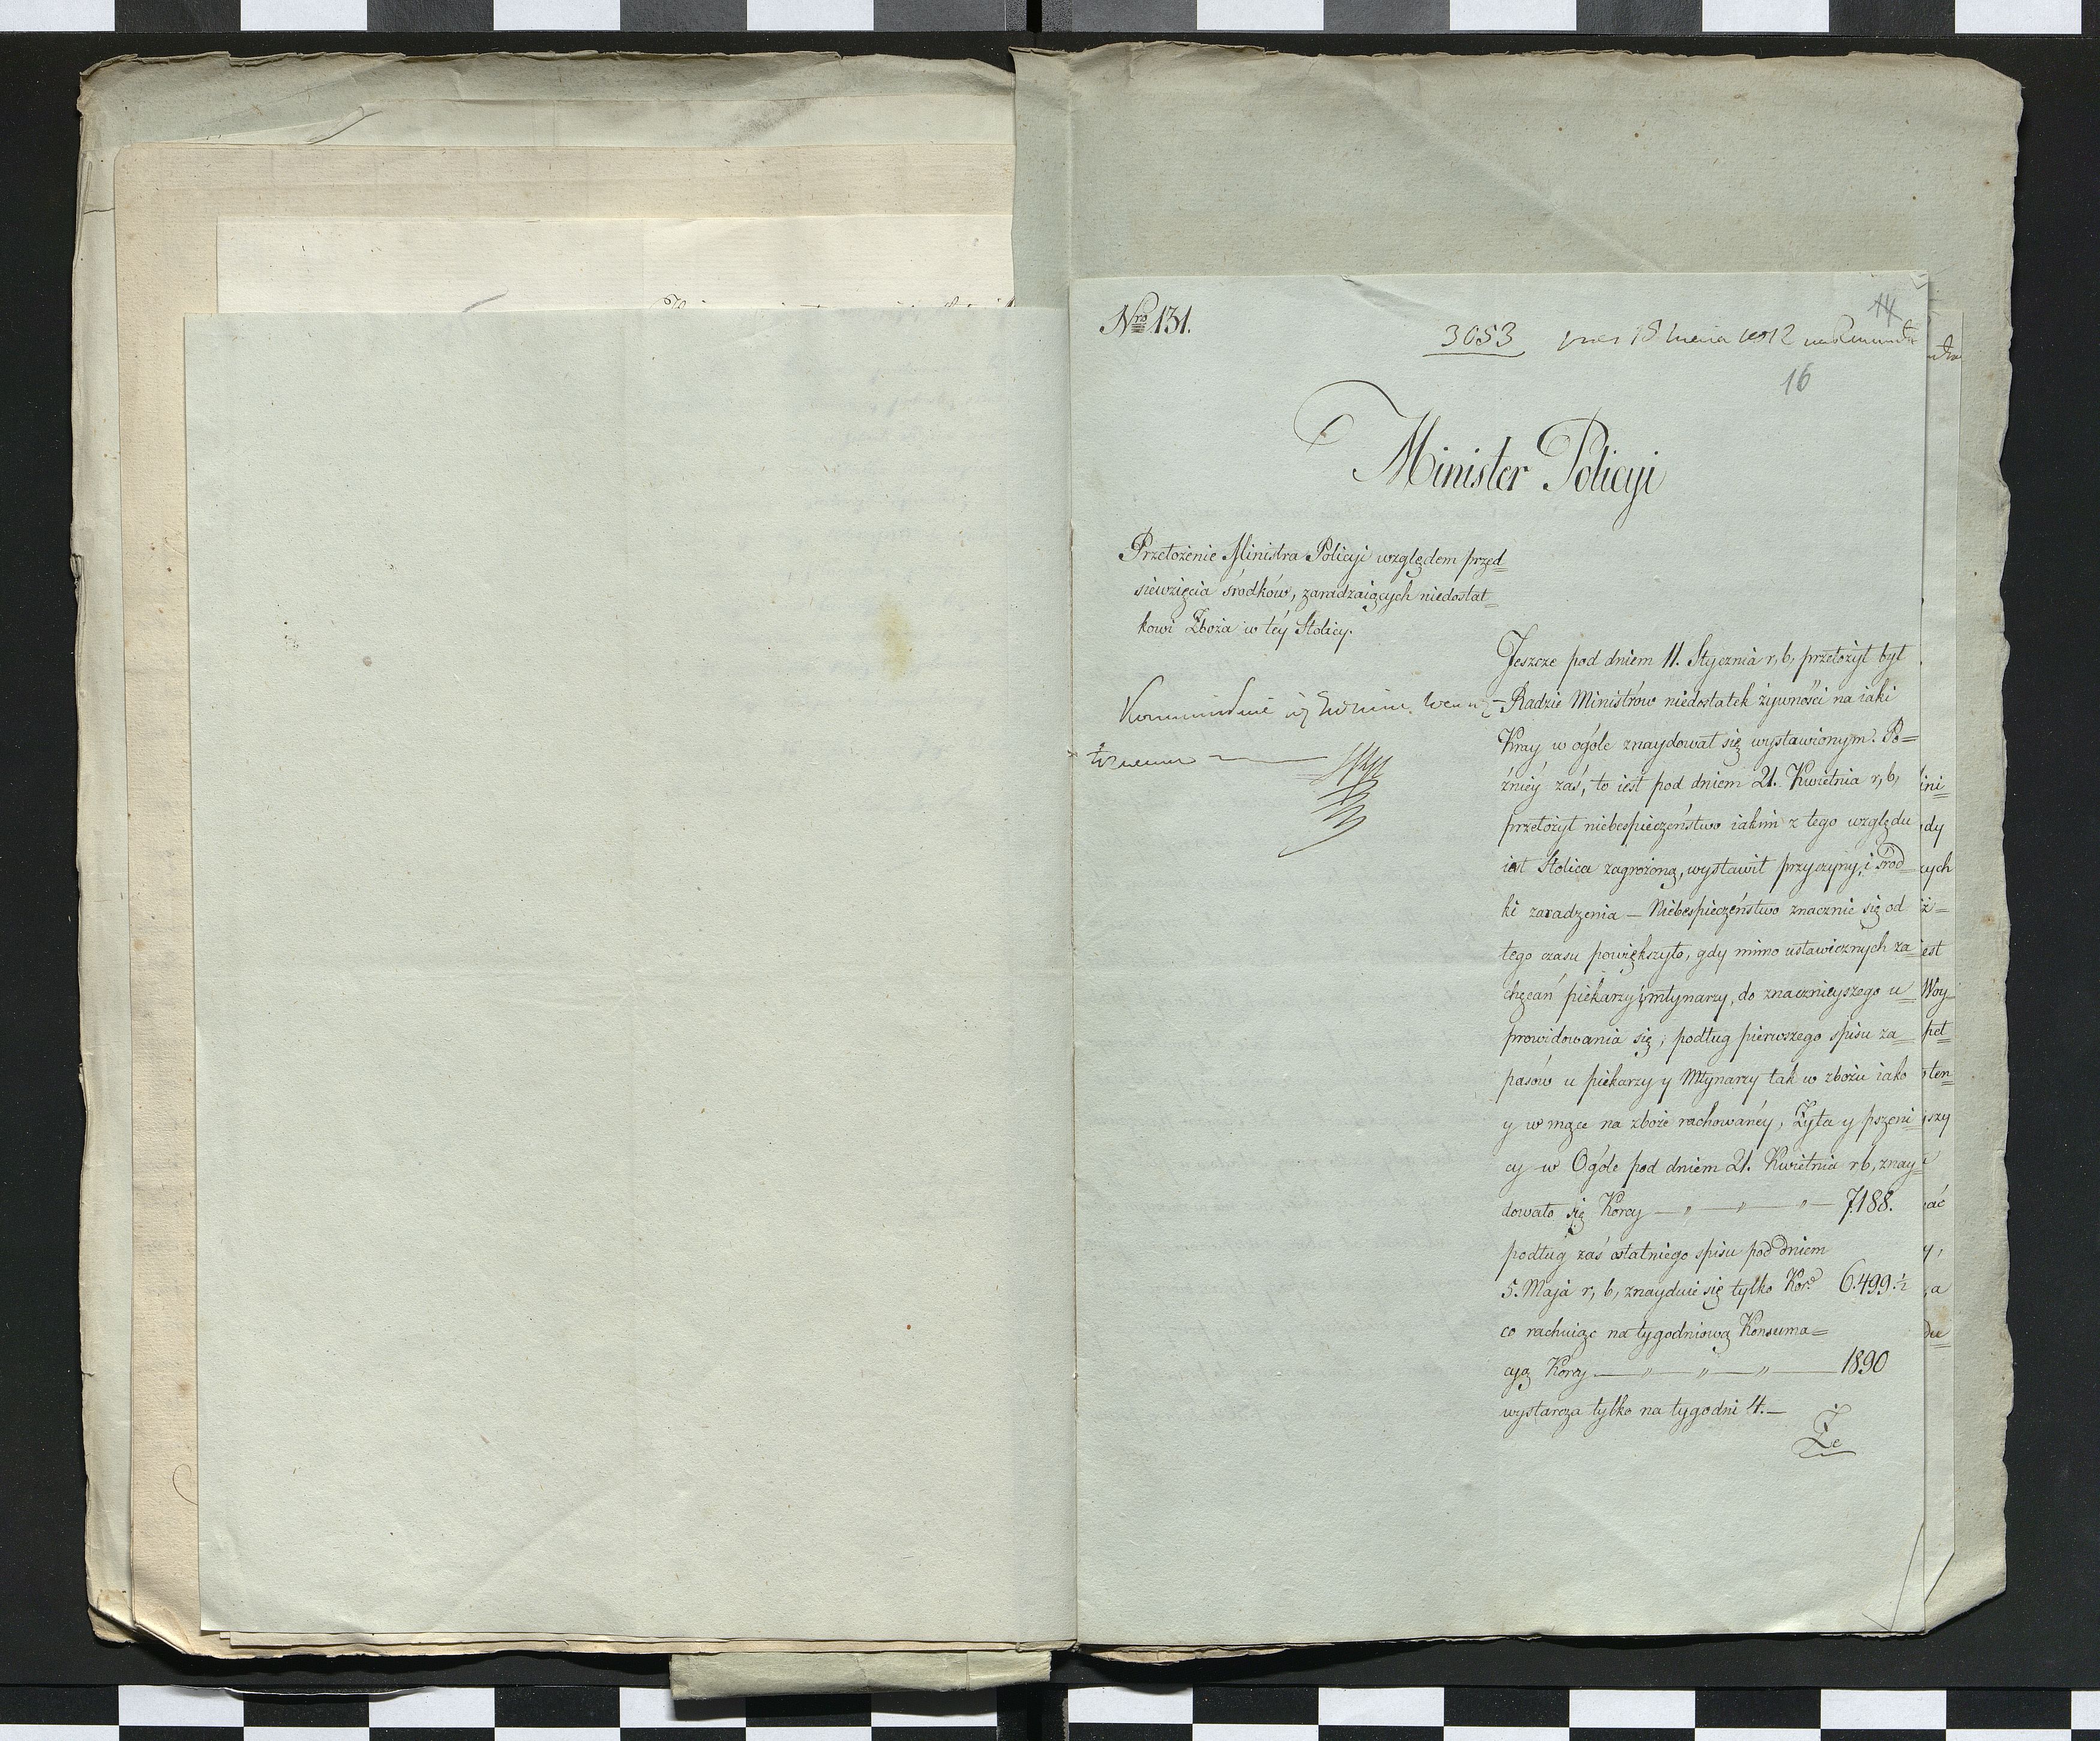 Nro 131.
14
3053 18 1812
16
Minister Policyi
Przełożenie Ministra Policyi względem przed=
siewzięcia środków, zaradzaiących niedostat=
kowi Zboża w tey Stolicy.
Jeszcze pod dniem 11. Stycznia r, b, przełożył był
Radzie Ministrów niedostatek żywności na iaki
Kray w ogóle znaydował się wystawionym. Po=
źniéy zaś, to iest pod dniem 21. Kwietnia r, b,
przełożył niebespieczeństwo iakim z tego względu
iest Stolica zagrożoną, wystawił przyczyny, i środ=
ki zaradzenia — Niebespieczeństwo znacznie się od
tego czasu powiększyło, gdy mimo ustawicznych za=
chęcań piekarzy i młynarzy, do znacznieyszego u=
prowidowania się, podług pierwszego spisu za=
pasów u piekarzy y Młynarzy tak w zbożu iako
y w mące na zboże rachowanéy, Żyta y pszeni=
cy w Ogóle pod dniem 21. Kwietnia rb, znay=
dowało się Korcy — " — " — 7.188.
podług zaś ostatniego spisu pod dniem
5. Maja r, b, znayduie się tylko Kor: 6.499.½
co rachuiąc na tygodniową Konsuma=
cyą Korcy — " — " — " — 1890
wystarcza tylko na tygodni 4. —
Że